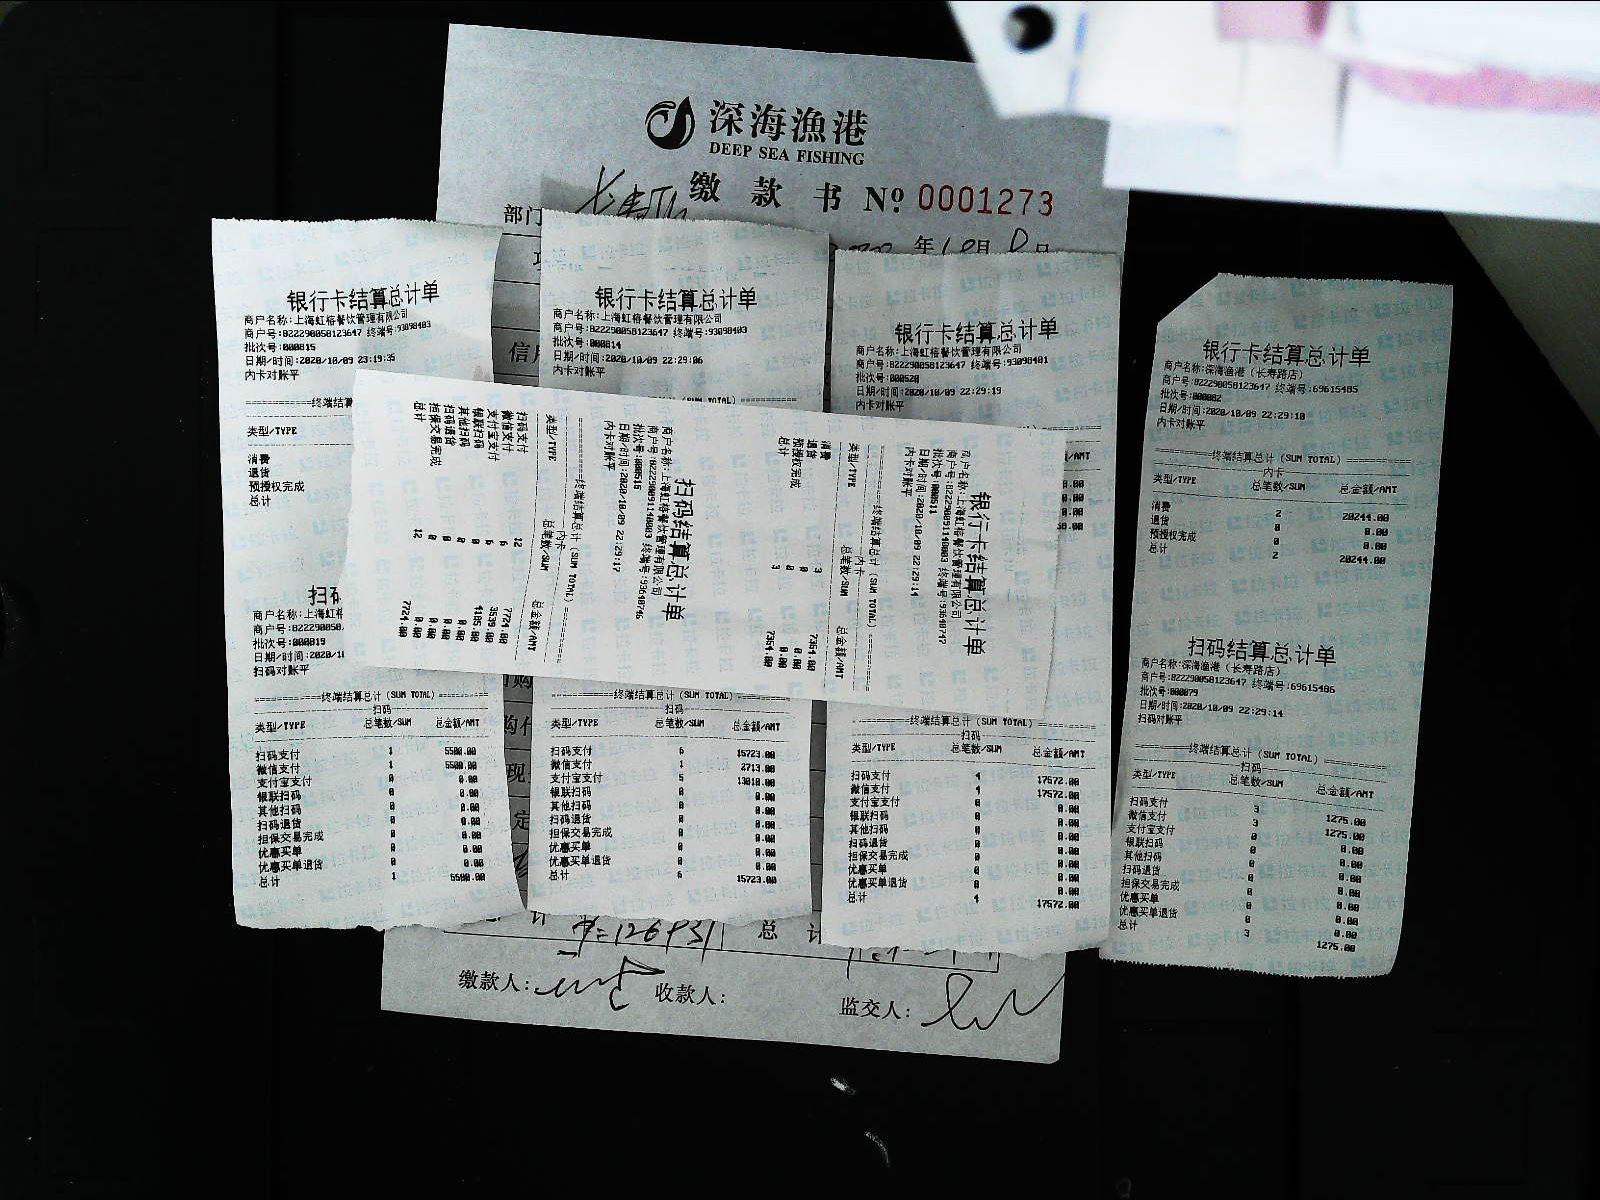 深海漁港
DEEP SEA FISHING
缴款书 № 0001273
部门
年10月
银行卡结算总计单
商户名称:上海虹榕餐饮管理有限公司
商户号:822290058123647 终端号:93098403
批次号:000815
日期/时间:2020/10/09 23:19:35
内卡对账平
类型/TYPE
消费
退货
预授权完成
总计
扫码
商户名称:上海虹
批次号:000819
扫码对账平
终端结算总计(SUM TOTAL)
扫码
类型/TYPE 总笔数/SUM 总金额/AMT
扫码支付 1 5500.00
微信支付 1 5500.00
支付宝支付 0 0.00
银联扫码 0 0.00
其他扫码 0 0.00
扫码退货 0 0.00
担保交易完成 0 0.00
优惠买单 0 0.00
优惠买单退货 0 0.00
总计 1 5500.00
银行卡结算总计单
商户名称:上海虹榕餐饮管理有限公司
商户号:822290058123647 终端号:93098403
批次号:000814
日期/时间:2020/10/09 22:29:06
内卡对账平
终端结算总计(SUM TOTAL)
扫码
类型/TYPE 总笔数/SUM 总金额/AMT
扫码支付 6 15723.00
微信支付 1 2713.00
支付宝支付 5 13010.00
银联扫码 0 0.00
其他扫码 0 0.00
扫码退货 0 0.00
担保交易完成 0 0.00
优惠买单 0 0.00
优惠买单退货 0 0.00
总计 6 15723.00
银行卡结算总计单
商户名称:上海虹榕餐饮管理有限公司
商户号:822290058123647 终端号:93098401
批次号:000520
日期/时间:2020/10/09 22:29:19
内卡对账平
终端结算总计(SUM TOTAL)
扫码
类型/TYPE 总笔数/SUM 总金额/AMT
扫码支付 4 17572.00
微信支付 4 17572.00
支付宝支付 0 0.00
银联扫码 0 0.00
其他扫码 0 0.00
扫码退货 0 0.00
担保交易完成 0 0.00
优惠买单 0 0.00
优惠买单退货 0 0.00
总计 4 17572.00
银行卡结算总计单
商户名称:上海虹榕餐饮管理有限公司
商户号:822290091140003 终端号:93640747
批次号:000511
日期/时间:2020/10/09 22:29:14
内卡对账平
终端结算总计(SUM TOTAL)
内卡
类型/TYPE 总笔数/SUM 总金额/AMT
消费 3 7354.00
退货 0 0.00
预授权完成 0 0.00
总计 3 7354.00
扫码结算总计单
商户名称:上海虹榕餐饮管理有限公司
商户号:822290091140003 终端号:93640746
批次号:000515
日期/时间:2020/10/09 22:29:17
内卡对账平
终端结算总计(SUM TOTAL)
内卡
类型/TYPE 总笔数/SUM 总金额/AMT
扫码支付 12 7724.00
微信支付 6 3539.00
支付宝支付 6 4185.00
银联扫码 0 0.00
其他扫码 0 0.00
扫码退货 0 0.00
担保交易完成 0 0.00
总计 12 7724.00
银行卡结算总计单
商户名称:深海渔港(长寿路店)
商户号:822290058123647 终端号:69615485
批次号:000082
日期/时间:2020/10/09 22:29:10
内卡对账平
终端结算总计(SUM TOTAL)
内卡
类型/TYPE 总笔数/SUM 总金额/AMT
消费 2 20244.00
退货 0 0.00
预授权完成 0 0.00
总计 2 20244.00
扫码结算总计单
商户名称:深海渔港(长寿路店)
商户号:822290058123647 终端号:69615486
批次号:000079
日期/时间:2020/10/09 22:29:14
扫码对账平
终端结算总计(SUM TOTAL)
扫码
类型/TYPE 总笔数/SUM 总金额/AMT
扫码支付 3 1275.00
微信支付 3 1275.00
支付宝支付 0 0.00
银联扫码 0 0.00
其他扫码 0 0.00
扫码退货 0 0.00
担保交易完成 0 0.00
优惠买单 0 0.00
优惠买单退货 0 0.00
总计 3 1275.00
计 总计
缴款人: 收款人: 监交人: